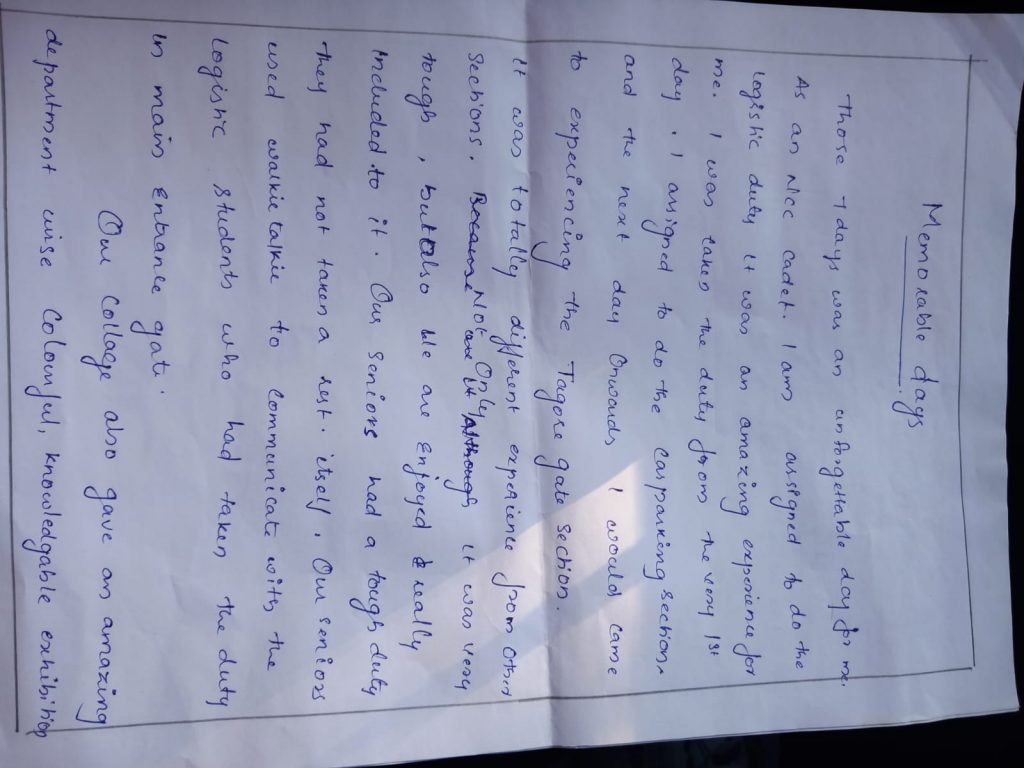 Memorable days.
Those 7 days was an unforgettable day for me.
As an Ncc cadet. I am assigned to do the
logistic duty it was an amazing experience for
me. I was taken the duty from the very 1st
day. I assigned to do the carparking section.
and the next day Onwards I would came
to experiencing the Tagore gate section.
It was totally different experience from other
Sections. Because Not Only it was very
tough, but also We are Enjoyed really
Included to it. Our seniors had a tough duty
they had not taken a rest. itself. Our seniors
used walkie talkie to Communicate with the
Logistic Students who had taken the duty
In main Entrance gate.
Our Collage also gave an amazing
department wise Colourful, knowledgable exhibition